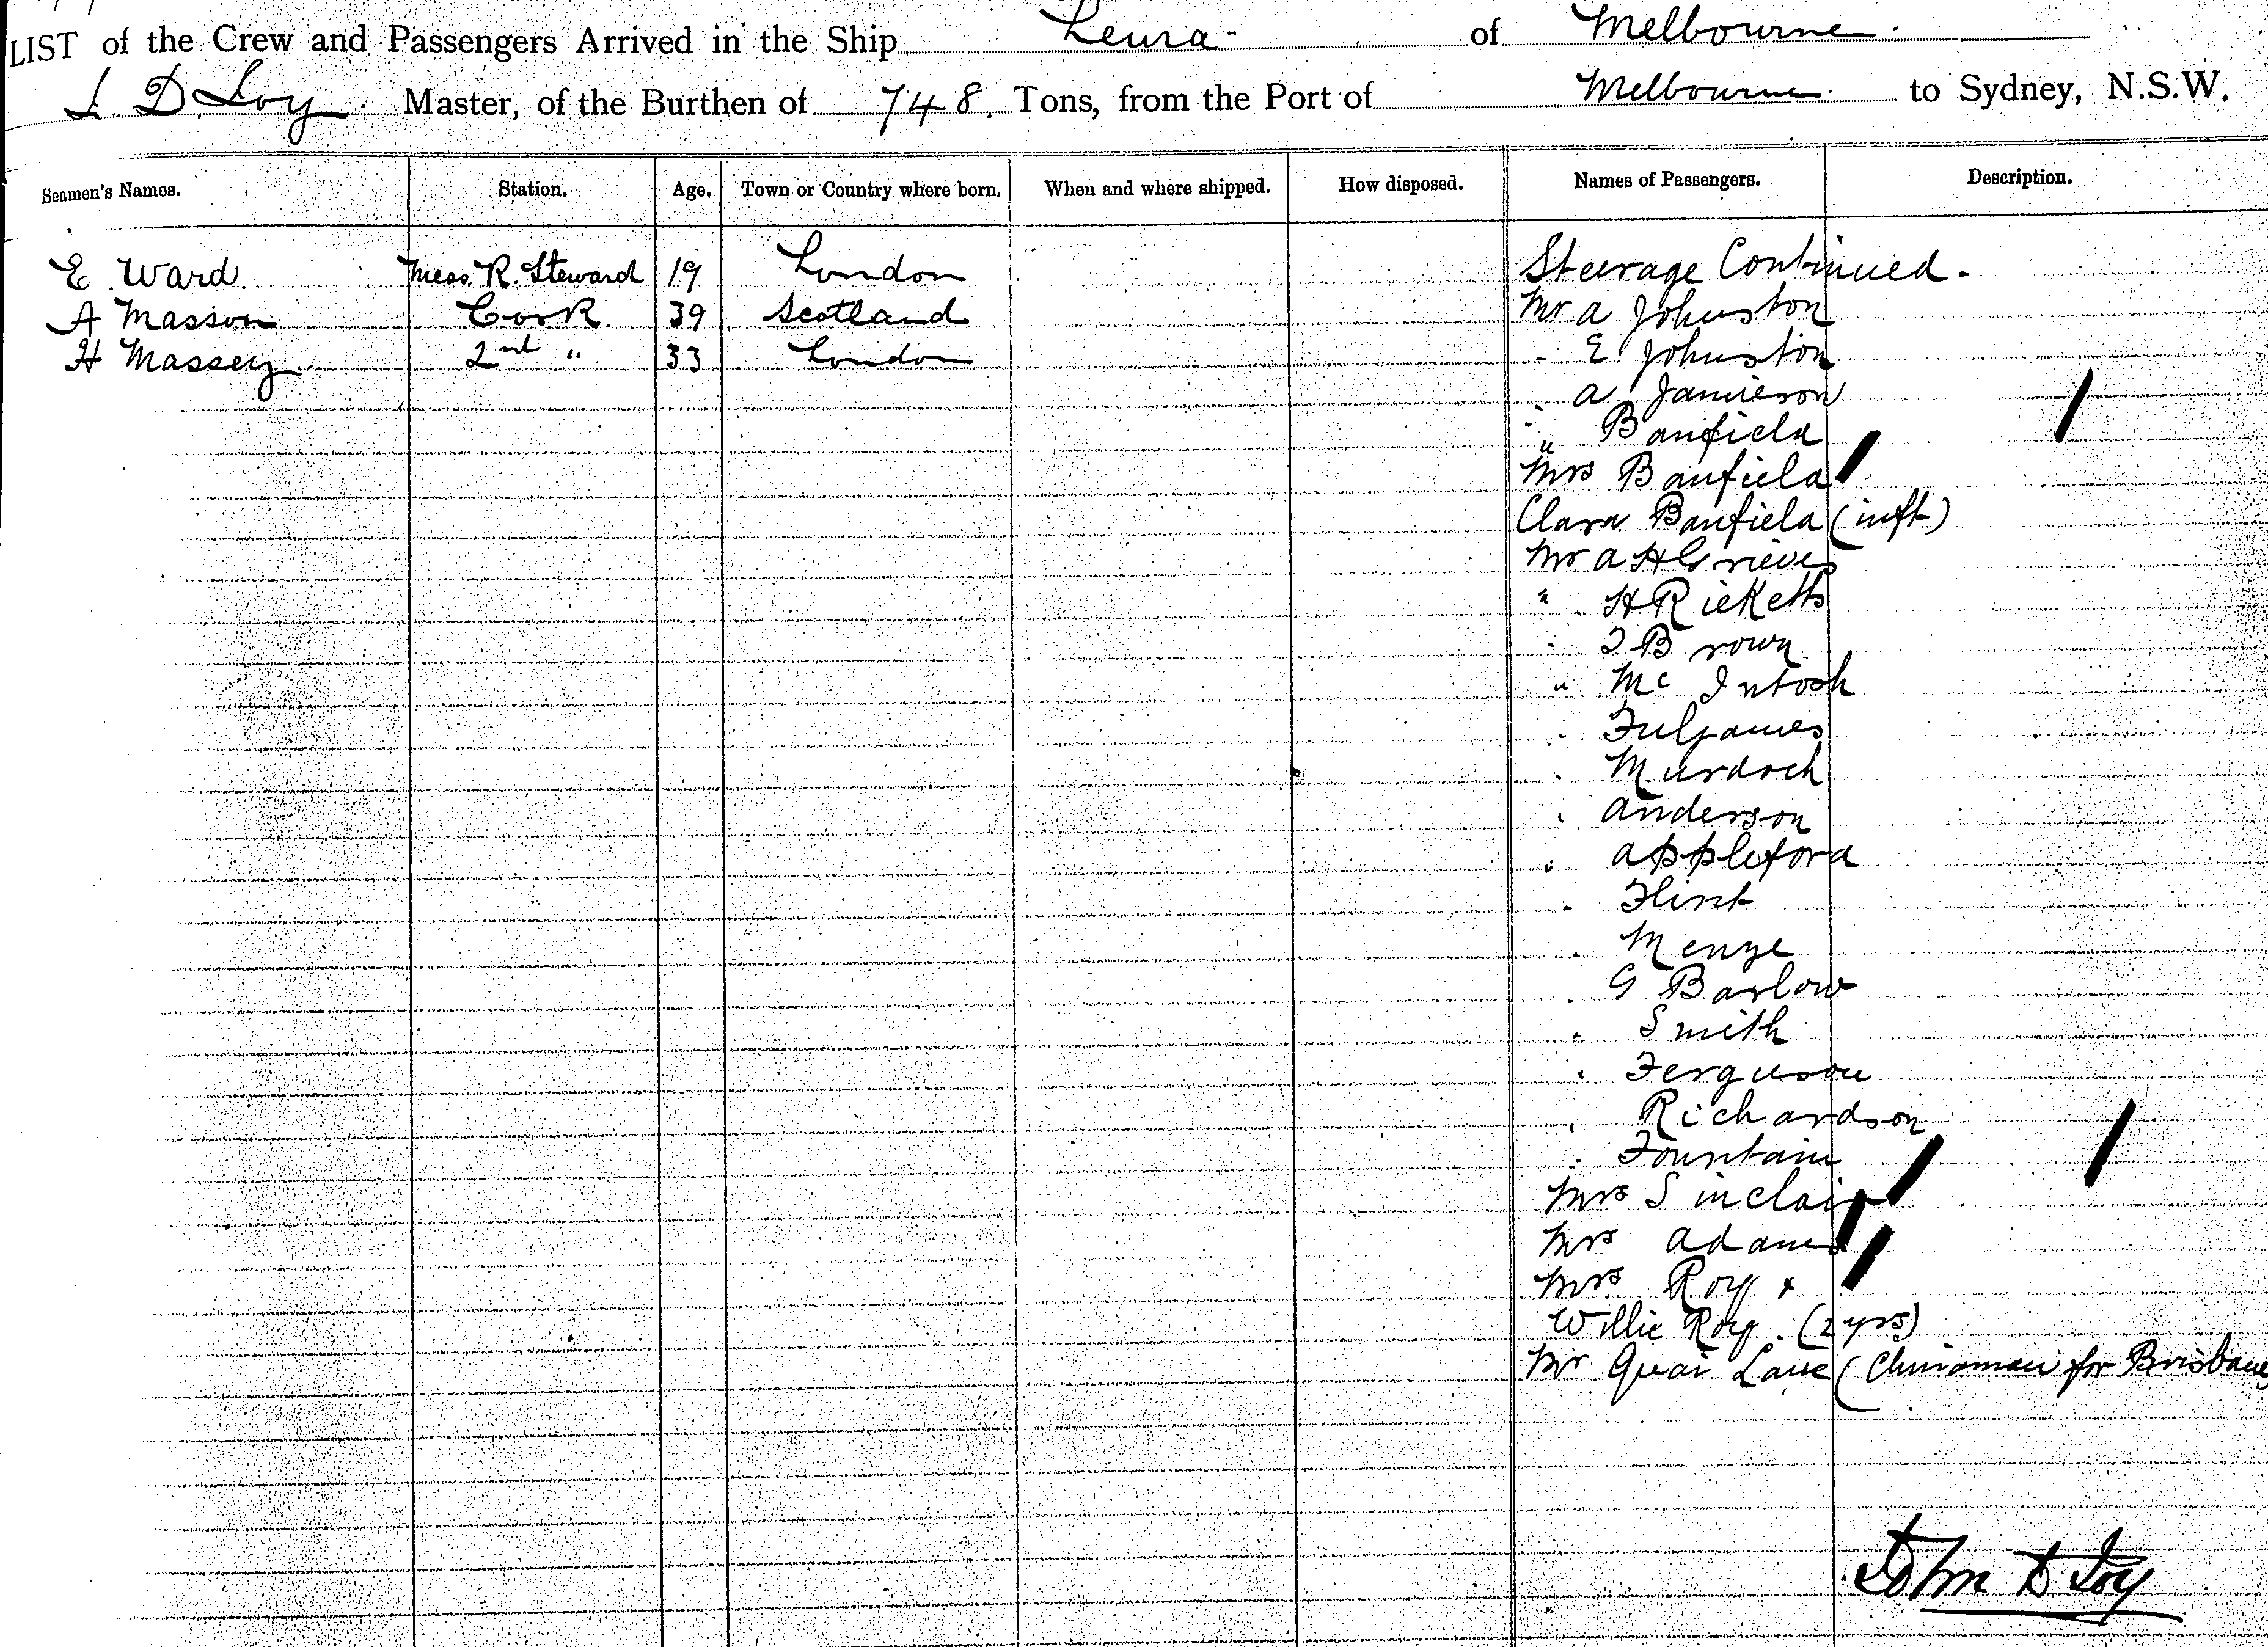 LIST of the Crew and Passengers Arrived in the Ship Leura of Melbourne.
J. D. Loy. Master, of the Burthen of 748. Tons, from the Port of Melbourne. to Sydney, N.S.W.
Seamen's Names. Station. Age. Town or Country where born. When and where shipped. How disposed. Names of Passengers. Description.
E Ward Mess. R. Steward 19 London
Steerage Continued.
A Masson Cook 39 Scotland
Mr A Johnston
H Massey 2nd " 33 London
" E Johnston
" A Jamieson
" Banfield
Mrs Banfield
Clara Banfield (inft)
Mr A H Grieves
" H Ricketts
" J Brown
" Mc Intosh
" Fuljames
" Murdoch
" Anderson
" Appleford
" Flint
" Menze
" G Barlow
" Smith
" Ferguson
" Richardson
" Fountain
Mrs Sinclair
Mrs Adams
Mrs Roy +
Willie Roy. (2 yrs)
Mr Quai Lane (Chinaman for Brisbane)
John D Loy